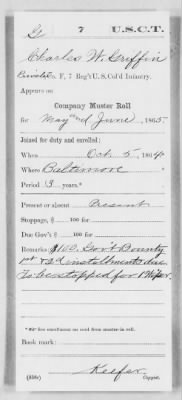 G 7 U.S.C.T.
Charles W. Griffin
Private, Co. F, 7 Reg't U.S. Col'd Infantry.
Appears on
Company Muster Roll
for May and June, 1865.
Joined for duty and enrolled:
When Oct. 5, 1864
Where Baltimore
Period 3 years.*
Present or absent Present
Stoppage, $ 100 for
Due Gov't $ 100 for
Remarks: $100. Gov't Bounty
1st & 2d installments due
To be stopped for 1
*See enrollment on card from muster-in roll.
Book mark:
Keefer
(358c) Copyist.